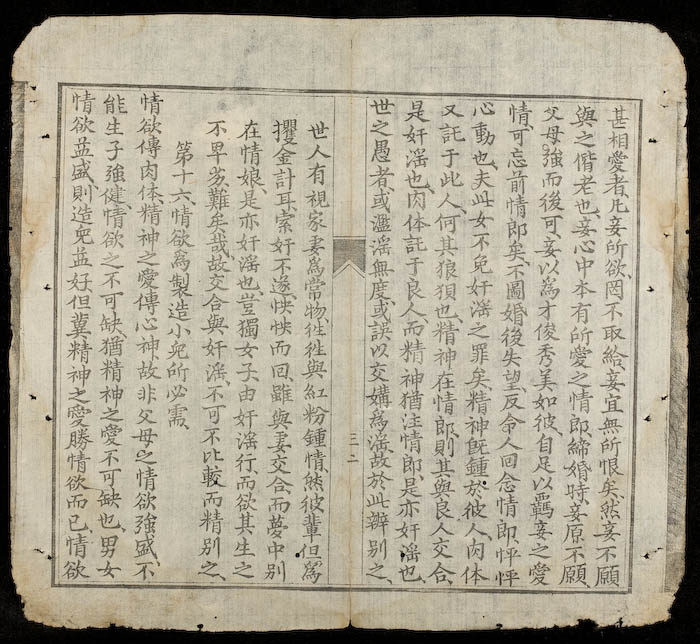 甚相愛者、凡妾所欲、罔不取給、妾宜無所恨矣、然妾不願
與之偕老也、妾心中本有所愛之情郎、締婚時、妾原不願、
父母強而後可、妾以為才俊秀美、如彼自足以羈妾之愛
情、可忘前情郎矣、不圖婚後失望、反命人回念情郎、怦怦
心動也、夫此女不免奸淫之罪矣、精神既鍾於彼人、肉体
又託于此人、何其狼狽也、精神在情郎、則其與良人交合、
是奸淫也、肉体託于良人、而精神猶注情郎、是亦奸淫也、
世之愚者、或濫淫無度、或誤以交媾為淫、故於此辨別之、
三二
世人有視家妻為常物、徃徃與紅粉鍾情、然彼輩但為
攫金計耳、索奸不遂、怏怏而回、雖與妻交合、而夢中別
在情娘、是亦奸淫也、豈獨女子、由奸淫行、而欲其生之
不卑劣、難矣哉、故交合與奸淫、不可不比較而精別之、
第十六、情欲為製造小兒所必需、
情欲傳肉体、精神之愛傳心神、故非父母之情欲強盛、不
能生子強健、情欲之不可缺、猶精神之愛不可缺也、男女
情欲益盛、則造兒益好、但冀精神之愛勝情欲而已、情欲